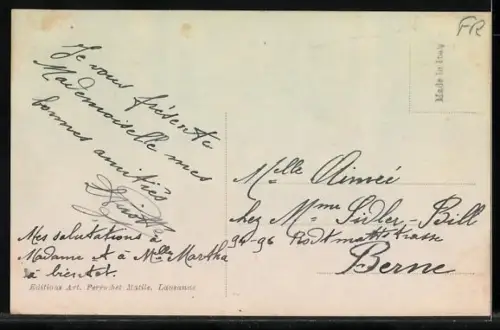 FR
Made in Italy
Je vous présente
Mademoiselle mes
bonnes amitiés
Mes salutations à
Madame et à Mlle Martha
à bientot.
Mlle Aimée
chez Mme Sidler-Bill
94-96 Rodtmattstrasse
Berne
Editions Art. Perrochet Matile, Lausanne